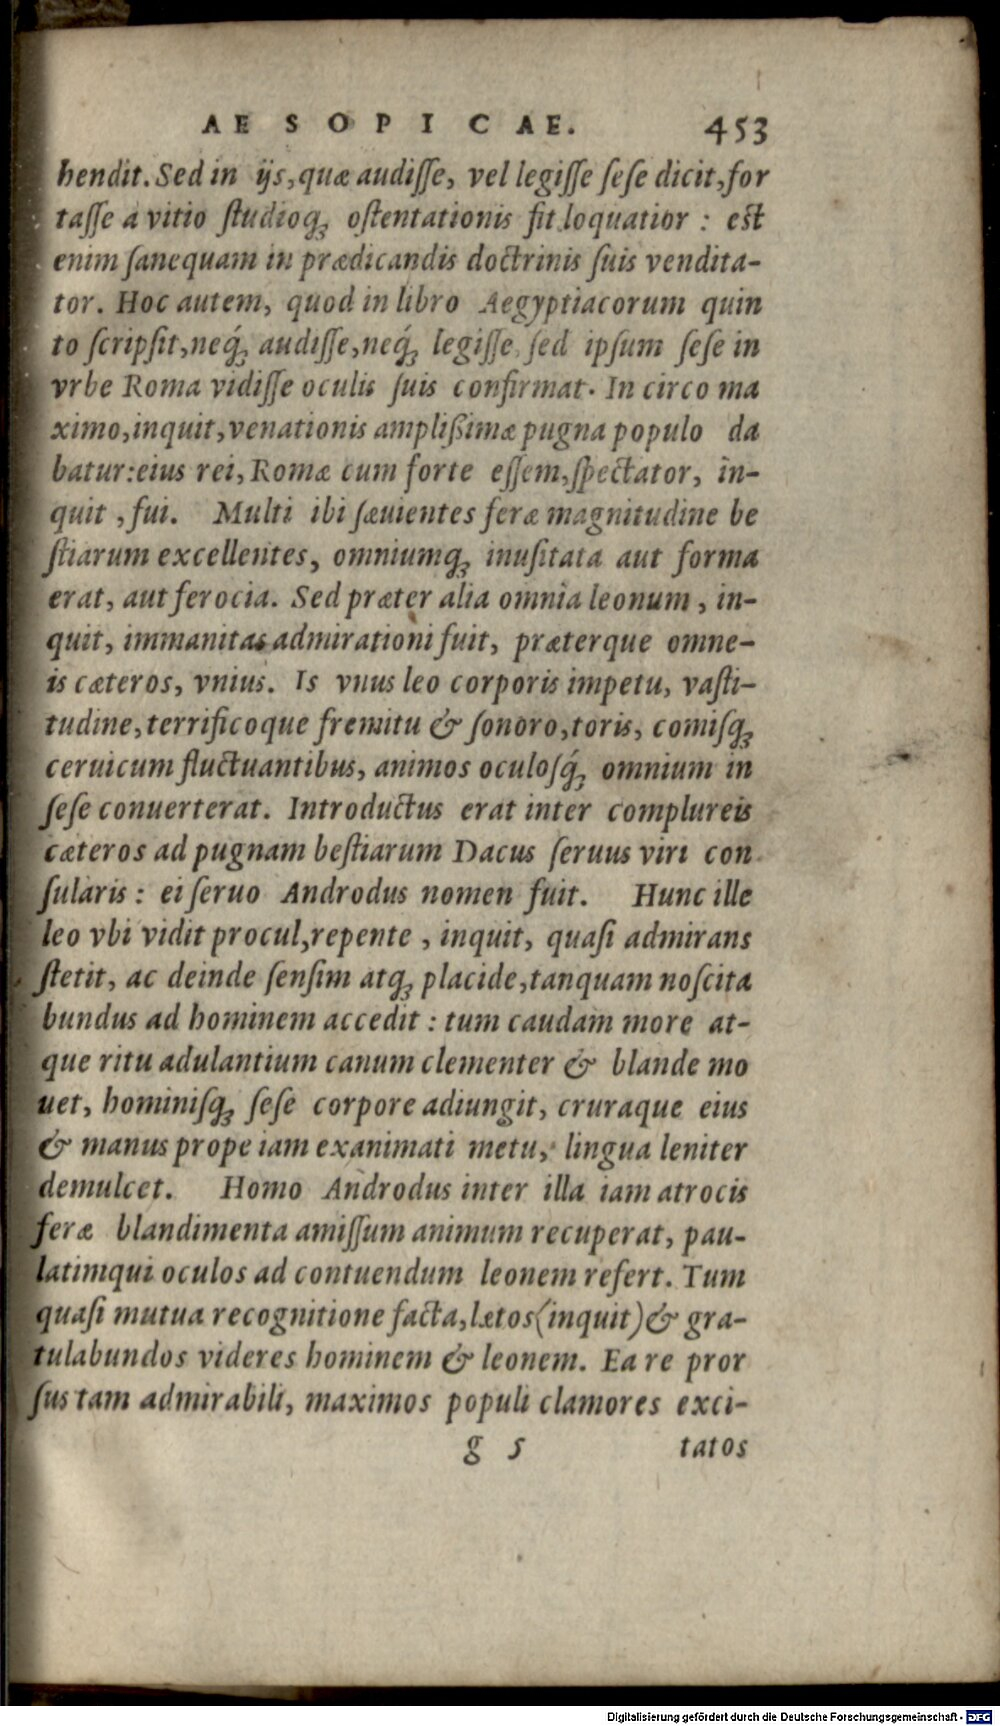 AESOPICAE. 453
hendit. Sed in ijs, quæ audiſſe, vel legiſſe ſeſe dicit, for
taſſe a vitio ſtudioq; oſtentationis fit loquatior : eſt
enim ſanequam in prædicandis doctrinis ſuis vendita-
tor. Hoc autem, quod in libro Aegyptiacorum quin
to ſcripſit, neq́; audiſſe, neq́; legiſſe, ſed ipſum ſeſe in
vrbe Roma vidiſſe oculis ſuis confirmat. In circo ma
ximo, inquit, venationis amplißimæ pugna populo da
batur: eius rei, Romæ cum forte eſſem, ſpectator, in-
quit, fui. Multi ibi ſæuientes feræ magnitudine be
ſtiarum excellentes, omniumq; inuſitata aut forma
erat, aut ferocia. Sed præter alia omnia leonum, in-
quit, immanitas admirationi fuit, præterque omne-
is cæteros, vnius. Is vnus leo corporis impetu, vaſti-
tudine, terrificoque fremitu & ſonoro, toris, comiſq;
ceruicum fluctuantibus, animos oculoſq́; omnium in
ſeſe conuerterat. Introductus erat inter complureis
cæteros ad pugnam beſtiarum Dacus ſeruus viri con
ſularis : ei ſeruo Androdus nomen fuit. Hunc ille
leo vbi vidit procul, repente, inquit, quaſi admirans
ſtetit, ac deinde ſenſim atq; placide, tanquam noſcita
bundus ad hominem accedit : tum caudam more at-
que ritu adulantium canum clementer & blande mo
uet, hominiſq; ſeſe corpore adiungit, cruraque eius
& manus prope iam exanimati metu, lingua leniter
demulcet. Homo Androdus inter illa iam atrocis
feræ blandimenta amiſſum animum recuperat, pau-
latimqui oculos ad contuendum leonem refert. Tum
quaſi mutua recognitione facta, lætos (inquit) & gra-
tulabundos videres hominem & leonem. Ea re pror
ſus tam admirabili, maximos populi clamores exci-
g 5 tatos
Digitalisierung gefördert durch die Deutsche Forschungsgemeinschaft - DFG